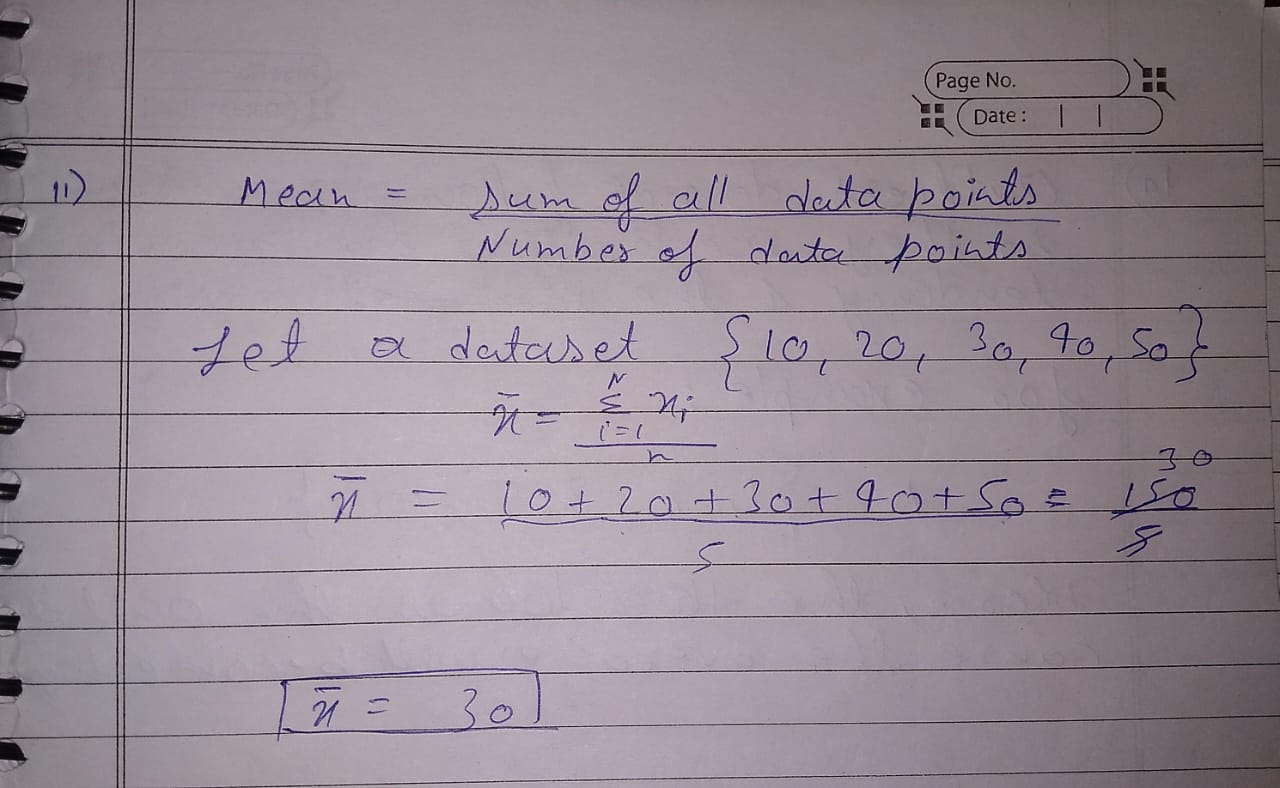 Page No.
Date : | |
11) Mean = Sum of all data points
Number of data points
Let a dataset {10, 20, 30, 40, 50}
N
x̄ = Σ xi
i=1
n
30
x̄ = 10 + 20 + 30 + 40 + 50 = 150
5 5
x̄ = 30